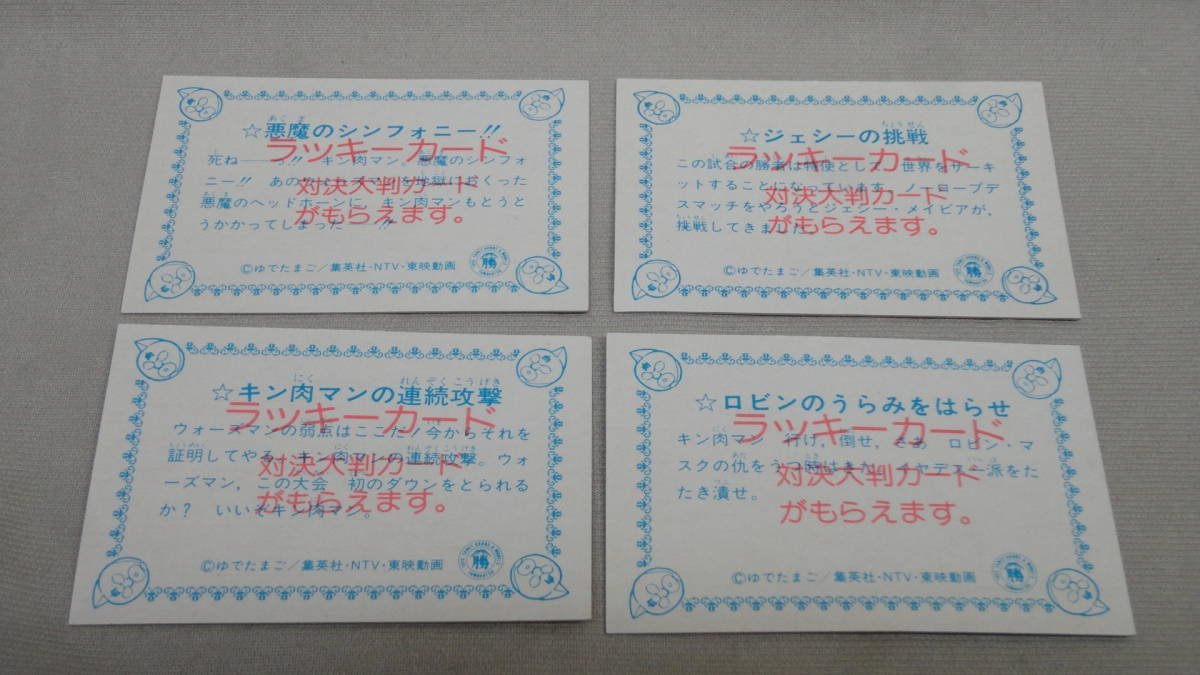 あくま
☆悪魔のシンフォニー!!
ラッキーカード
死ね――っ!! キン肉マン。悪魔のシンフォ
ニー!! あの
対決大判カード
を地獄におくった
悪魔のヘッドホーンに、キン肉マンもとうと
がもらえます。
うかかってしまった――!!
©ゆでたまご/集英社・NTV・東映動画
勝
ちょうせん
☆ジェシーの挑戦
ラッキーカード
この試合の勝者は特使として、世界をサーキ
ットすることになっています。ノーロープデ
対決大判カード
スマッチをやろうとジェシー・メイビアが、
がもらえます。
挑戦してきました。
©ゆでたまご/集英社・NTV・東映動画
勝
にく れんぞくこうげき
☆キン肉マンの連続攻撃
ラッキーカード
ウォーズマンの弱点はここだ!今からそれを
証明してやる。キン肉マンの連続攻撃。ウォ
対決大判カード
ーズマン,この大会 初のダウンをとられる
がもらえます。
か? いいぞキン肉マン。
©ゆでたまご/集英社・NTV・東映動画
勝
☆ロビンのうらみをはらせ
ラッキーカード
キン肉マン 行け,倒せ,さあ ロビン・マ
スクの仇をうつ時はきた
派をた
対決大判カード
たき潰せ。
がもらえます。
©ゆでたまご/集英社・NTV・東映動画
勝